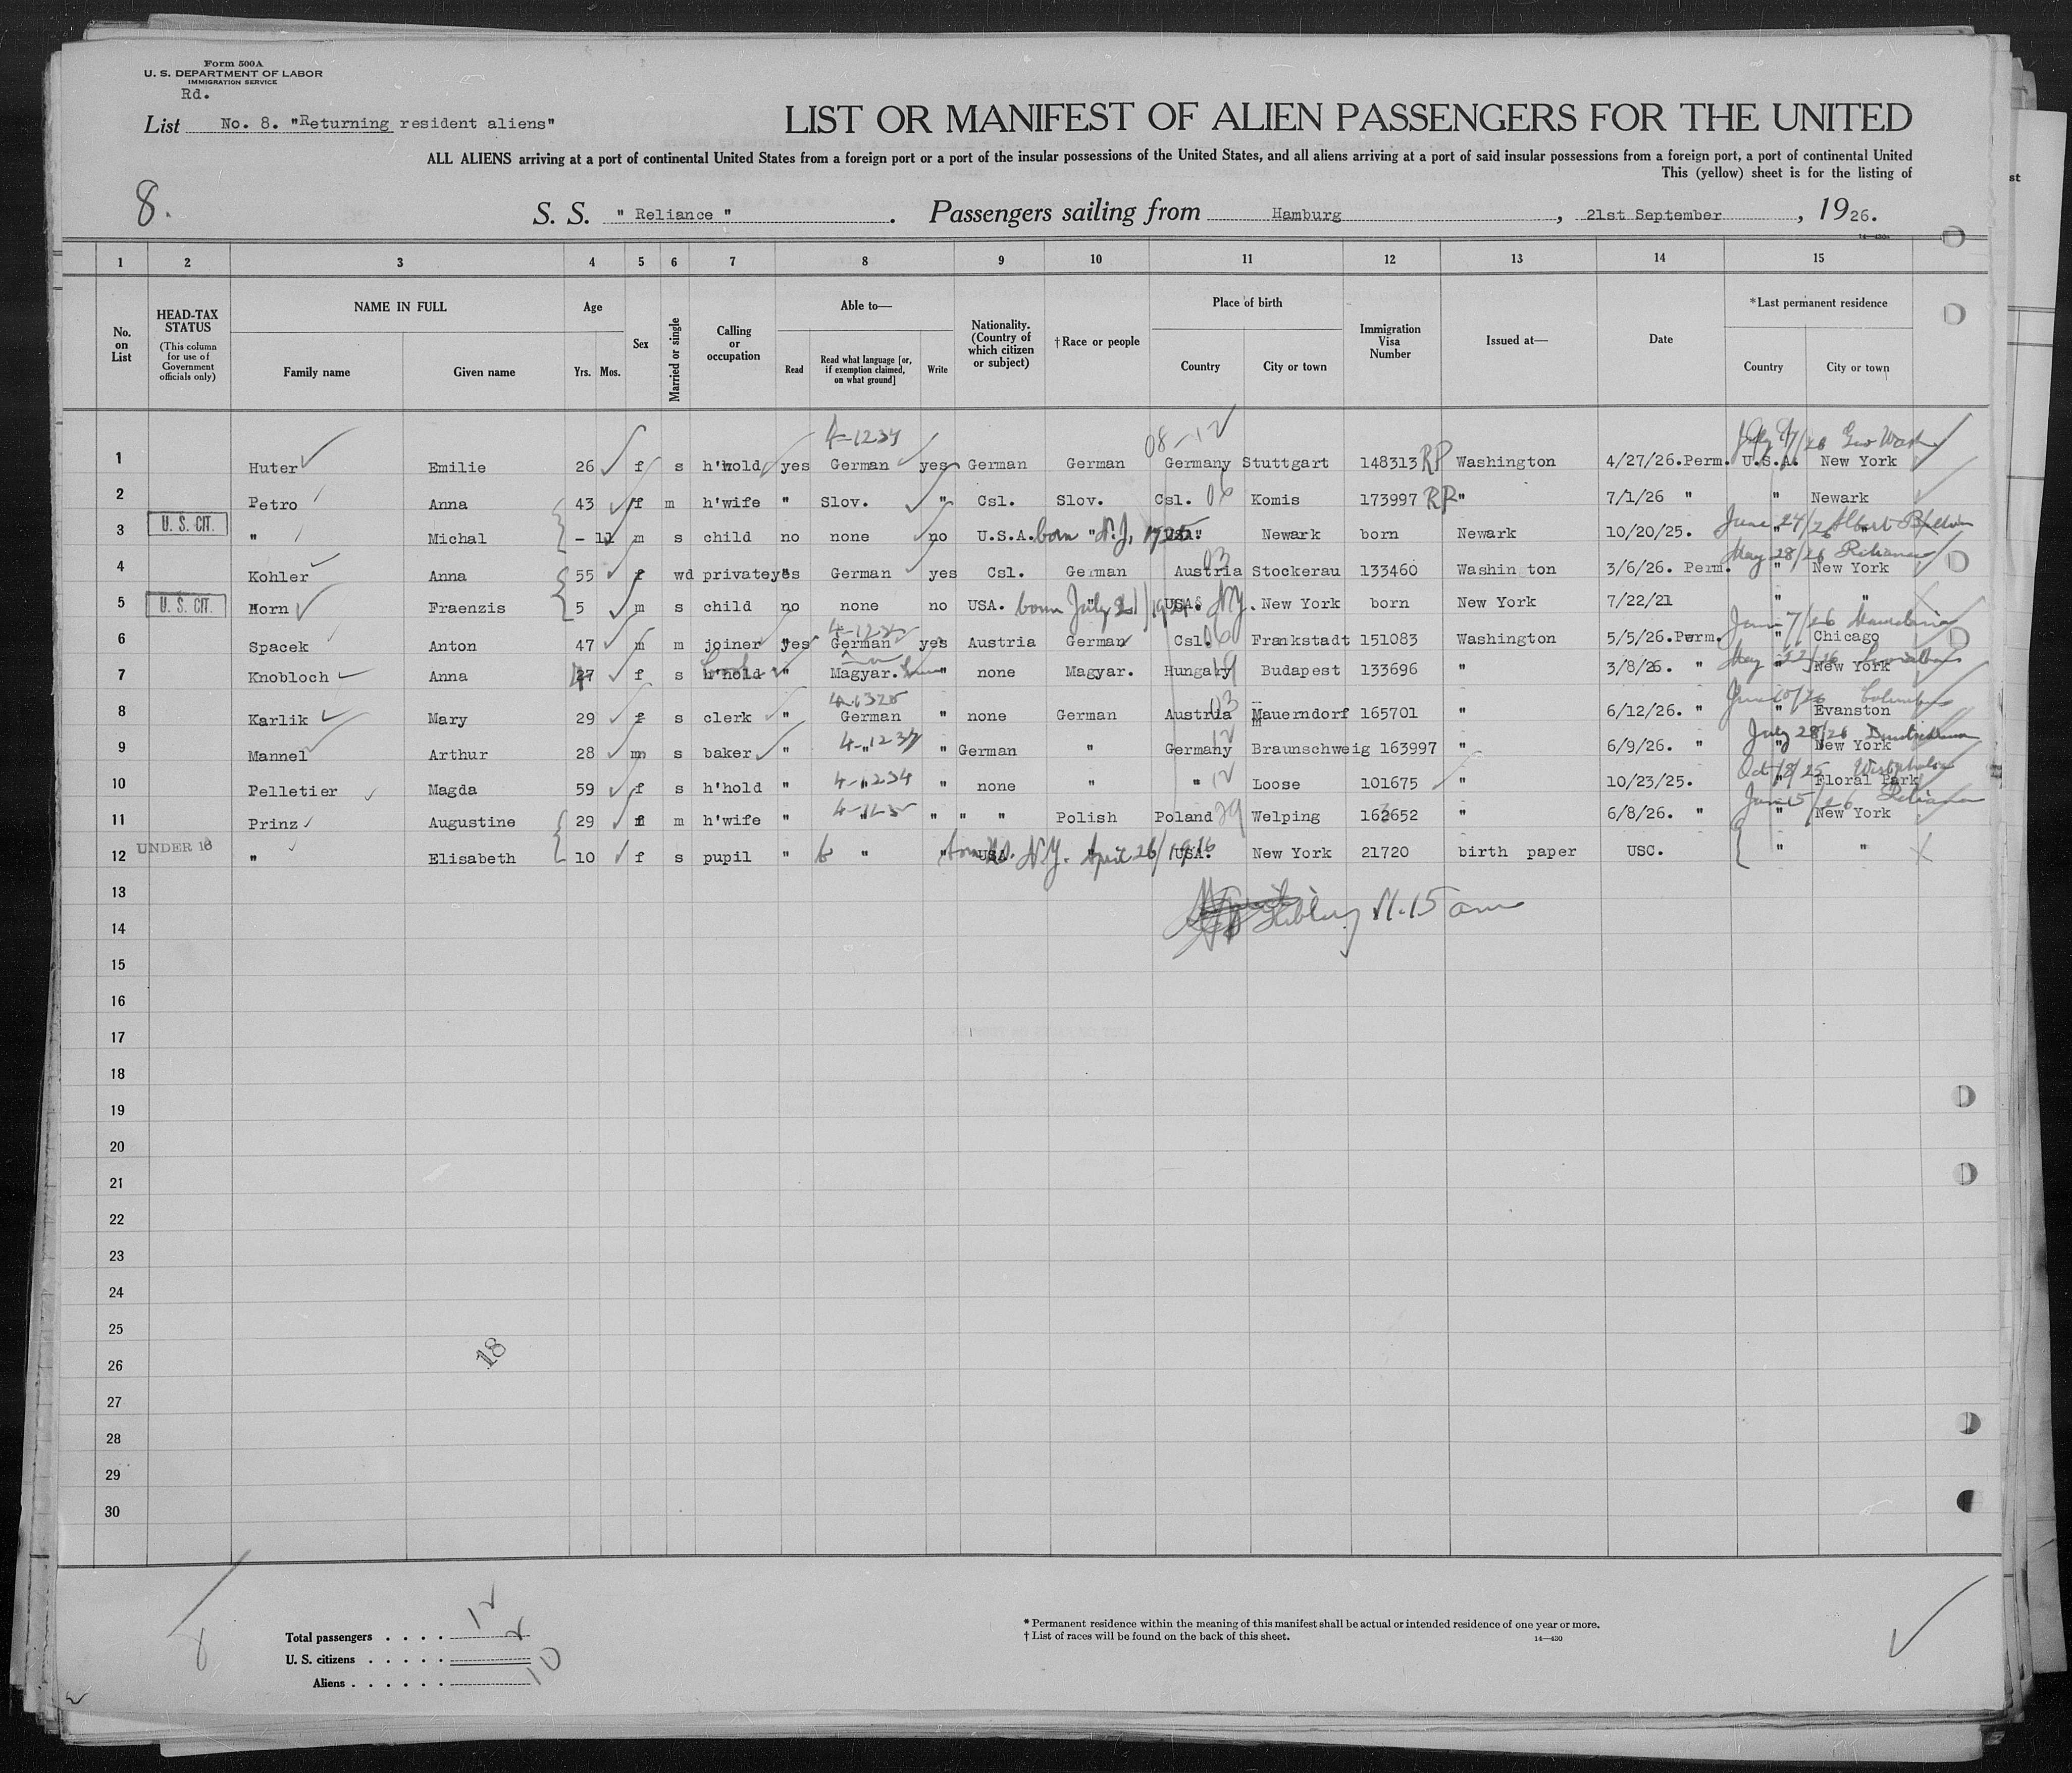 Form 500A
U. S. DEPARTMENT OF LABOR
IMMIGRATION SERVICE
Rd.
List No. 8. "Returning resident aliens"
LIST OR MANIFEST OF ALIEN PASSENGERS FOR THE UNITED
ALL ALIENS arriving at a port of continental United States from a foreign port or a port of the insular possessions of the United States, and all aliens arriving at a port of said insular possessions from a foreign port, a port of continental United
This (yellow) sheet is for the listing of
st
8.
S. S. " Reliance " . Passengers sailing from Hamburg , 21st September , 1926.
14—430
1 2 3 4 5 6 7 8 9 10 11 12 13 14 15
No. on List
HEAD-TAX STATUS (This column for use of Government officials only)
NAME IN FULL
Family name Given name
Age
Yrs. Mos.
Sex
Married or single
Calling or occupation
Able to—
Read Read what language [or, if exemption claimed, on what ground] Write
Nationality. (Country of which citizen or subject)
†Race or people
Place of birth
Country City or town
Immigration Visa Number
Issued at—
Date
*Last permanent residence
Country City or town
4-1234 08-12 July 17/26 Geo Wash
1 Huter Emilie 26 f s h'hold yes German yes German German Germany Stuttgart 148313 RP Washington 4/27/26.Perm. U.S.A. New York
2 Petro Anna 43 f m h'wife " Slov. " Csl. Slov. Csl. 06 Komis 173997 RP " 7/1/26 " " Newark
U. S. CIT. June 24/26 Albert Ballin
3 " Michal - 11 m s child no none no U.S.A. born " N.J. Newark born Newark 10/20/25. " "
03 May 28/26 Reliance
4 Kohler Anna 55 f wd private yes German yes Csl. German Austria Stockerau 133460 Washin ton 3/6/26. Perm. " New York
U. S. CIT.
5 Horn Fraenzis 5 m s child no none no USA. born July 21/1921 USA. N.Y. New York born New York 7/22/21 " "
6 Spacek Anton 47 m m joiner yes German yes Austria German Csl. 06 Frankstadt 151083 Washington 5/5/26.Perm. " Chicago
7 Knobloch Anna 27 f s h'hold " Magyar. " none Magyar. Hungary Budapest 133696 " 3/8/26. " " New York
03 June 10/26 Columbus
8 Karlik Mary 29 f s clerk " German " none German Austria Mauerndorf 165701 " 6/12/26. " " Evanston
4-1234 12 July 28/26
9 Mannel Arthur 28 m s baker " " " German " Germany Braunschweig 163997 " 6/9/26. " " New York
4-1234 12 Oct 18/25
10 Pelletier Magda 59 f s h'hold " " " none " " Loose 101675 " 10/23/25. " Floral Park
June 15/26 Reliance
11 Prinz Augustine 29 f m h'wife " " " " " Polish Poland 29 Welping 162652 " 6/8/26. " " New York
UNDER 16
12 " Elisabeth 10 f s pupil " " " USA N.Y. April 26/1916 USA. New York 21720 birth paper USC. " "
13
11.15 am
14
15
16
17
18
19
20
21
22
23
24
25
18
26
27
28
29
30
Total passengers . . . . 12
U. S. citizens . . . . . 2
Aliens . . . . . . 10
* Permanent residence within the meaning of this manifest shall be actual or intended residence of one year or more.
† List of races will be found on the back of this sheet. 14—430